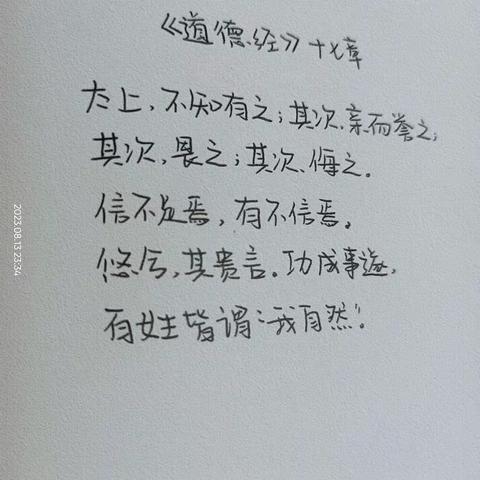 《道德经》十七章
太上，不知有之；其次、亲而誉之；
其次，畏之；其次、侮之。
信不足焉，有不信焉。
悠兮，其贵言。功成事遂，
百姓皆谓："我自然"。
2023.08.13 23:34